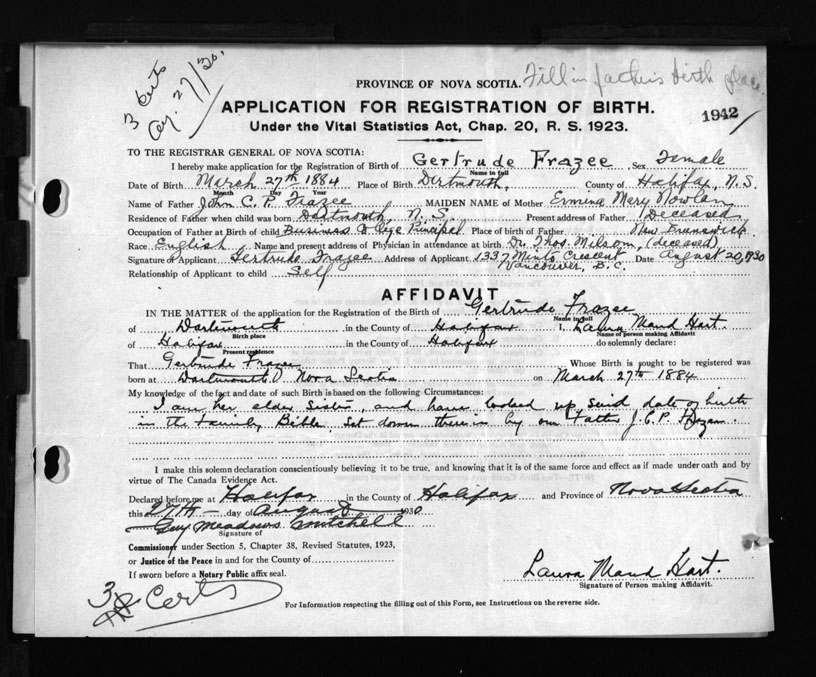 3 certs
Aug. 27/30.
Fill in father's birth place.
PROVINCE OF NOVA SCOTIA.
APPLICATION FOR REGISTRATION OF BIRTH.
1942
Under the Vital Statistics Act, Chap. 20, R. S. 1923.
TO THE REGISTRAR GENERAL OF NOVA SCOTIA:
I hereby make application for the Registration of Birth of Gertrude Frazee Sex Female
Name in full
Date of Birth March 27th 1884 Place of Birth Dartmouth, County of Halifax, N.S.
Month Day Year
Name of Father John C. P. Frazee MAIDEN NAME of Mother Ermina Mary Nowlan
Residence of Father when child was born Dartmouth, N.S. Present address of Father (Deceased)
Occupation of Father at Birth of child Business College Principal Place of birth of Father New Brunswick
Race English Name and present address of Physician in attendance at birth Dr. Thos. Milsom, (deceased)
Signature of Applicant Gertrude Frazee Address of Applicant 1337 Minto Crescent Date August 20, 1930
Vancouver, B.C.
Relationship of Applicant to child Self
AFFIDAVIT
IN THE MATTER of the application for the Registration of the Birth of Gertrude Frazee
Name in full
of Dartmouth in the County of Halifax I, Laura Maud Hart.
Birth place Name of person making Affidavit
of Halifax in the County of Halifax do solemnly declare:
Present residence
That Gertrude Frazee Whose Birth is sought to be registered was
born at Dartmouth Nova Scotia on March 27th 1884
My knowledge of the fact and date of such Birth is based on the following Circumstances:
I am her elder sister, and have looked up said date of birth
in the Family Bible set down therein by our Father J.C.P. Frazee.
I make this solemn declaration conscientiously believing it to be true, and knowing that it is of same force and effect as if made under oath and by
virtue of The Canada Evidence Act.
Declared before me at Halifax in the County of Halifax and Province of Nova Scotia
this 27th day of August 1930
Guy Meadows Mitchell
Signature of
Commissioner under Section 5, Chapter 38, Revised Statutes, 1923,
or Justice of the Peace in and for the County of
If sworn before a Notary Public affix seal.
Laura Maud Hart.
Signature of Person making Affidavit.
3 Certs
For Information respecting the filling out of this Form, see Instructions on the reverse side.